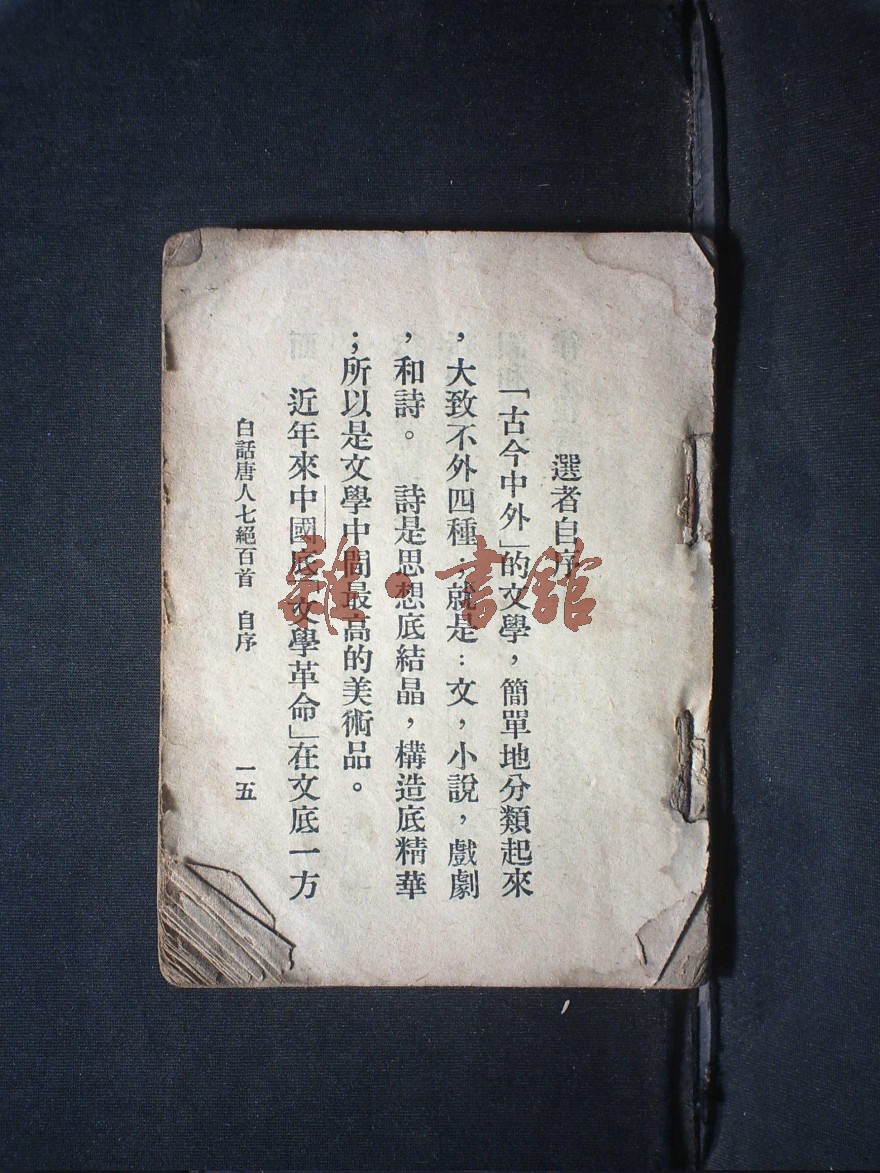 選者自序
「古今中外」的文學，簡單地分類起來
，大致不外四種；就是：文，小說，戲劇
，和詩。　詩是思想底結晶，構造底精華
；所以是文學中間最高的美術品。
近年來中國底「文學革命」在文底一方
白話唐人七絕百首　自序　一五
雜·書館